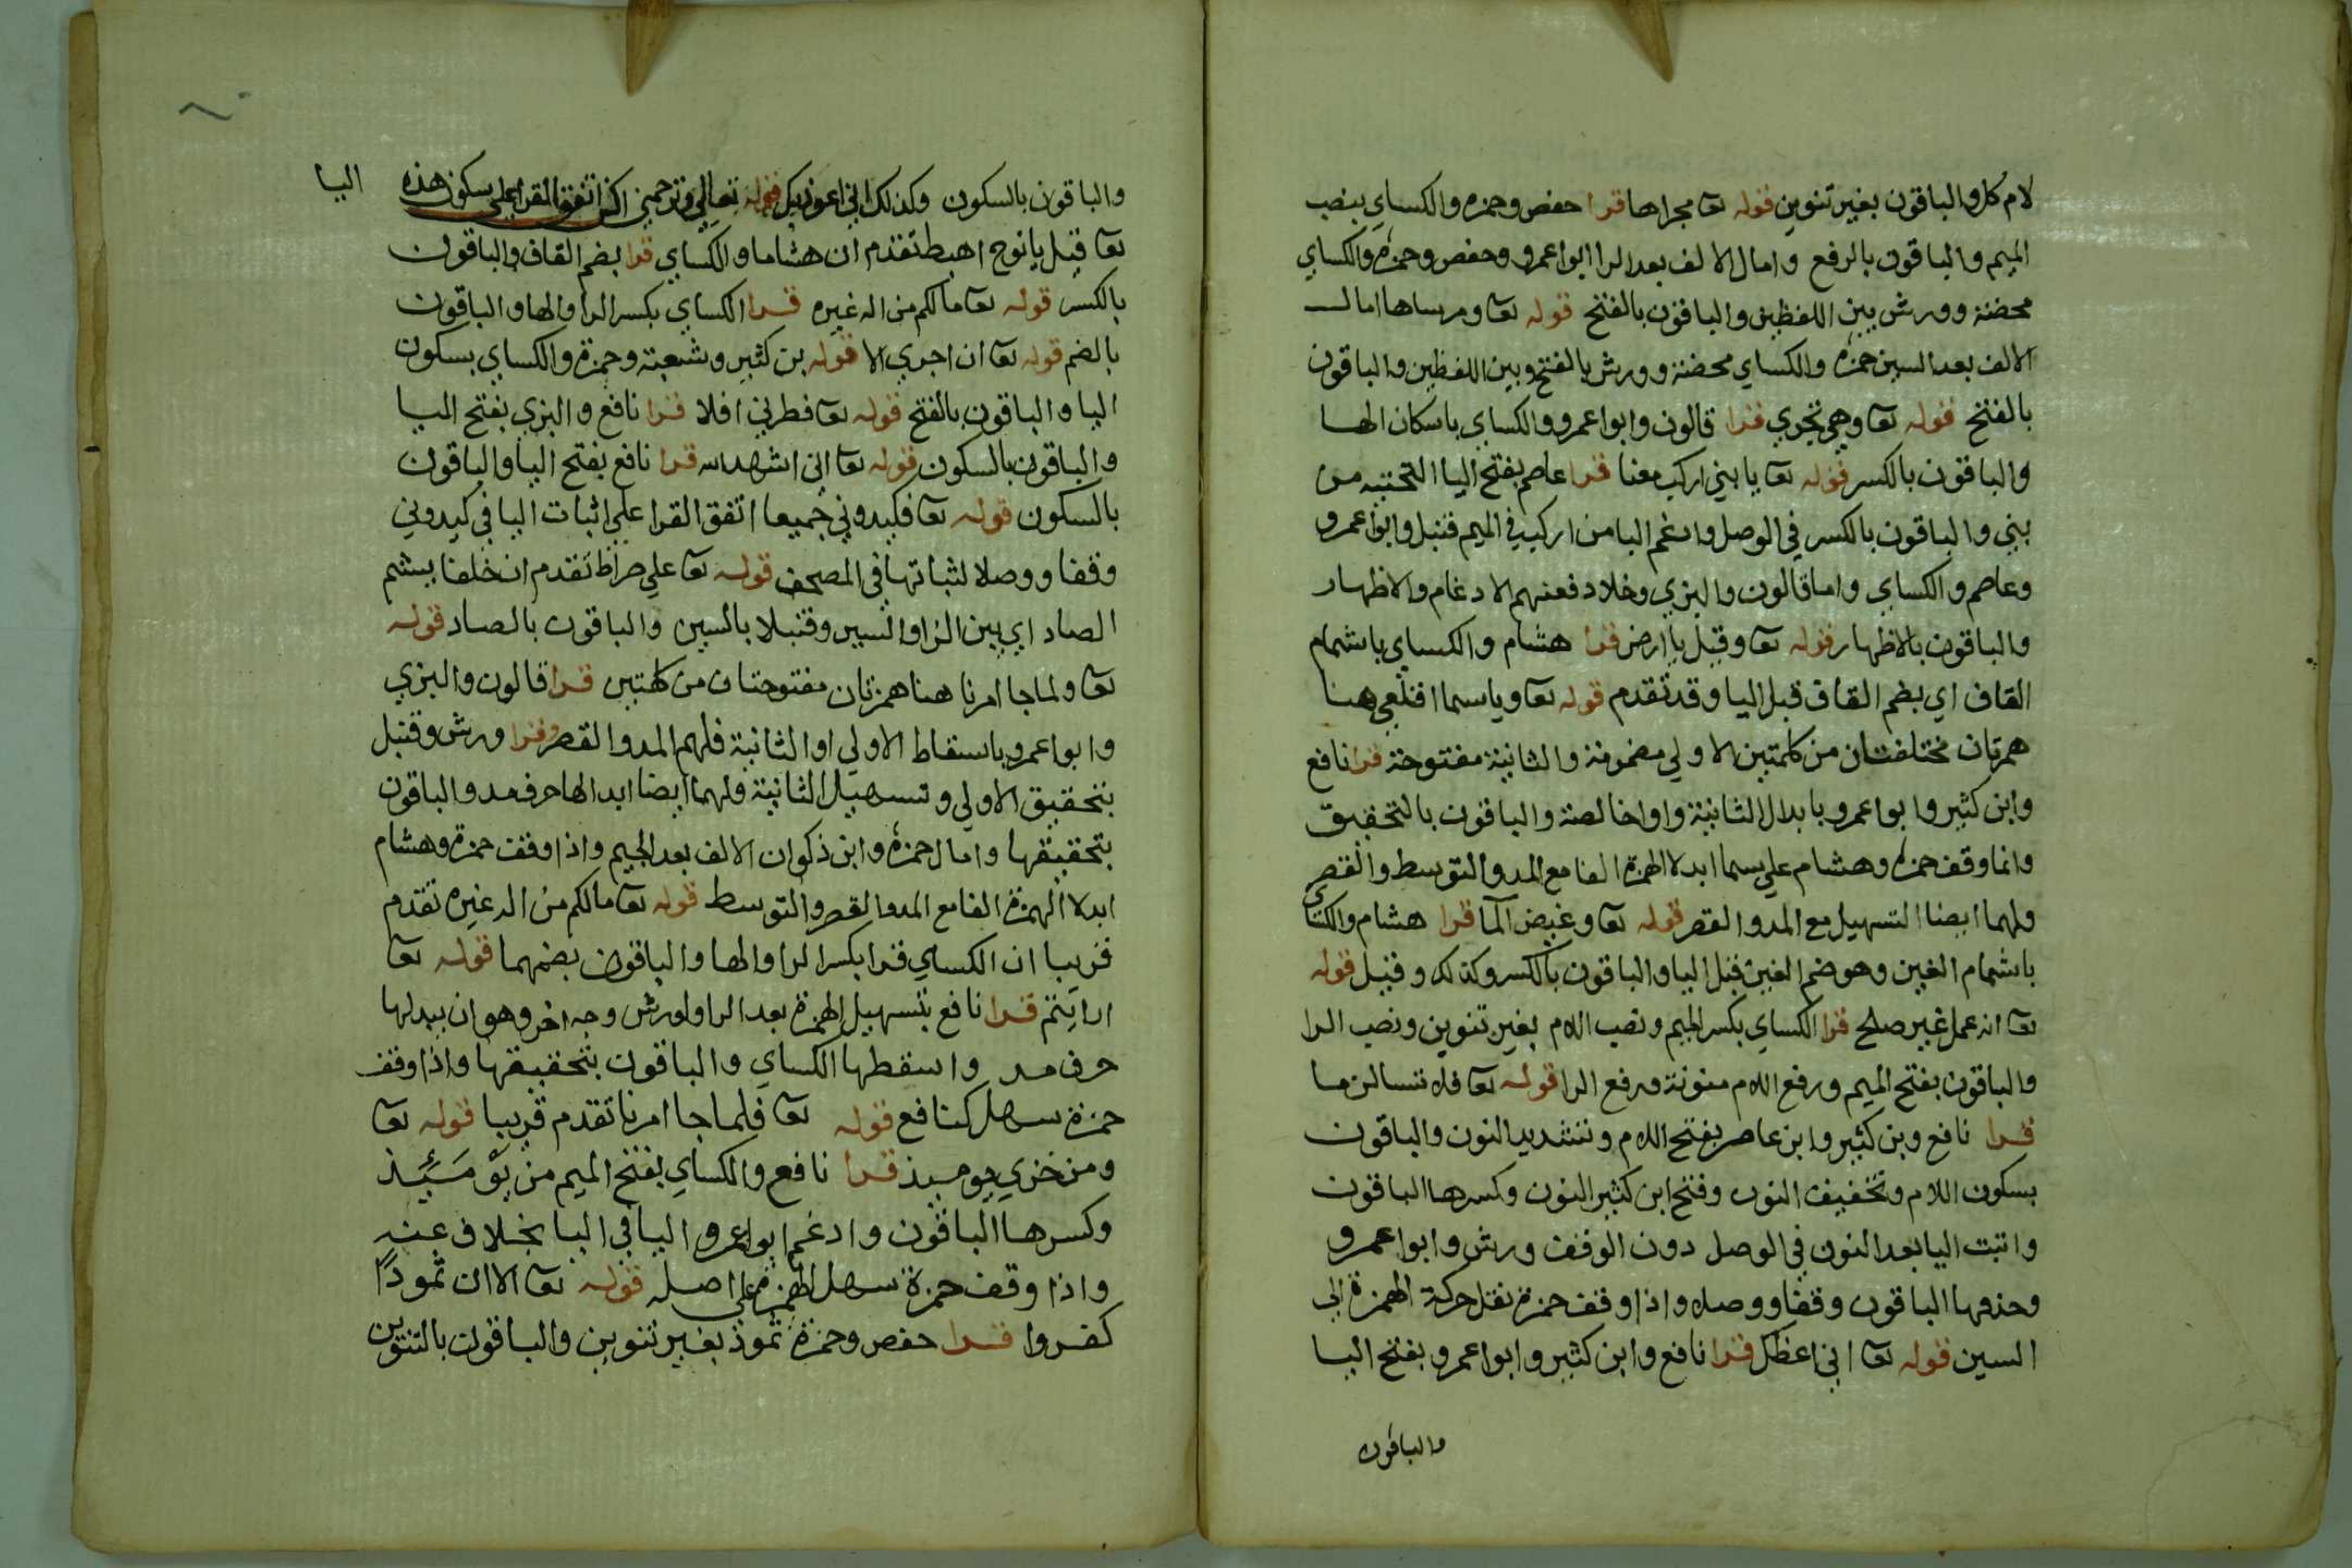 لام كل والباقون بغير تنوين قوله تعا مجراها قرا حفص وحمزه والكساي بنصب
الميم والباقون بالرفع وامال الالف بعد الرا ابوا عمرو وحفص وحمزة والكساي
محضة وورش بين اللفظين والباقون بالفتح قوله تعا ومرساها امال
الالف بعد السين حمزة والكساي محضة وورش بالفتح وبين اللفظين والباقون
بالفتح قوله تعا وهي تجري قرا قالون وابوا عمرو والكساي باسكان الها
والباقون بالكسر قوله تعا يا بني اركب معنا قرا عاصم بفتح اليا التحتيه من
بني والباقون بالكسر في الوصل وادغم البا من اركب في الميم قنبل وابوا عمرو
وعاصم والكساي واما قالون والبزي وخلاد فعنهم الادغام والاظهار
والباقون بالاظهار قوله تعا وقيل يا ارض قرا هشام والكساي باشمام
القاف اي بضم القاف قبل اليا وقد تقدم قوله تعا ويا سما اقلعي هنا
همزتان مختلفتان من كلمتين الاولي مضمومة والثانية مفتوحة قرا نافع
وابن كثير وابوا عمرو بابدال الثانية واوا خالصة والباقون بالتحقيق
وانما وقف حمزة وهشام علي سما ابدلا الهمزة الفا مع المد والتوسط والقصر
ولهما ايضا التسهيل مع المد والقصر قوله تعا وغيض المآ قرا هشام والكساي
باشمام الغين وهو ضم الغين قبل اليا والباقون بالكسر وكذلك وقيل قوله
تعا انه عمل غير صلح قرا الكساي بكسر الميم ونصب اللام بغير تنوين ونصب الرا
والباقون بفتح الميم ورفع اللام منونة ورفع الرا قوله تعا فلا تسالن ما
قرا نافع وبن كثير وابن عامر بفتح اللام وتشديد النون والباقون
بسكون اللام وتخفيف النون وفتح ابن كثير النون وكسرها الباقون
واثبت اليا بعد النون في الوصل دون الوقف ورش وابوا عمرو
وحذفها الباقون وقفا ووصلا واذا وقف حمزة نقل حركة الهمزة الي
السين قوله تعا اني اعظك قرا نافع وابن كثير وابوا عمرو بفتح اليا
والباقون
والباقون بالسكون وكذلك اني اعوذ بك قوله تعالي وترحمني اكن اتفق القرا علي سكون هذه اليا
تعا قيل يا نوح اهبط تقدم ان هشاما والكساي قرا بضم القاف والباقون
بالكسر قوله تعا ما لكم من اله غيره قرا الكساي بكسر الرا والها والباقون
بالضم قوله تعا ان اجري الا قوله بن كثير وشعبة وحمزة والكساي بسكون
اليا والباقون بالفتح قوله تعا فطرني افلا قرا نافع والبزي بفتح اليا
والباقون بالسكون قوله تعا اني اشهد الله قرا نافع بفتح اليا والباقون
بالسكون قوله تعا فكيدوني جميعا اتفق القرا علي اثبات اليا في كيدوني
وقفا ووصلا لثباتها في المصحف قوله تعا علي صراط تقدم ان خلفا يشم
الصاد اي بين الزا والسين وقنبلا بالسين والباقون بالصاد قوله
تعا ولما جا امرنا هنا همزتان مفتوحتان من كلمتين قرا قالون والبزي
وابوا عمرو باسقاط الاولي او الثانية فلهم المد والقصر وقرا ورش وقنبل
بتحقيق الاولي وتسهيل الثانية ولهما ايضا ابدالها حرف مد والباقون
بتحقيقها وامال حمزة وابن ذكوان الالف بعد الجيم واذا وقف حمزة وهشام
ابدلا الهمزة الفا مع المد والقصر والتوسط قوله تعا ما لكم من اله غيره تقدم
قريبا ان الكساي قرا بكسر الرا والها والباقون بضمهما قوله تعا
ارايتم قرا نافع بتسهيل الهمزة بعد الرا ولورش وجه اخر وهو ان يبدلها
حرف مد واسقطها الكساي والباقون بتحقيقها واذا وقف
حمزة سهل كنافع قوله تعا فلما جا امرنا تقدم قريبا قوله تعا
ومن خزي يوميذ قرا نافع والكساي بفتح الميم من يَوْمَئِذ
وكسرها الباقون وادغم ابوا عمرو اليا في اليا بخلاف عنه
واذا وقف حمزة سهل الهمزة علي اصله قوله تعا الا ان ثموداً
كفروا قرا حفص وحمزة ثموذ بغير تنوين والباقون بالتنوين